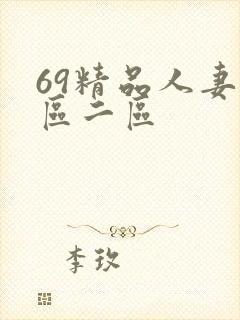 69精品人妻
區二區
李玫